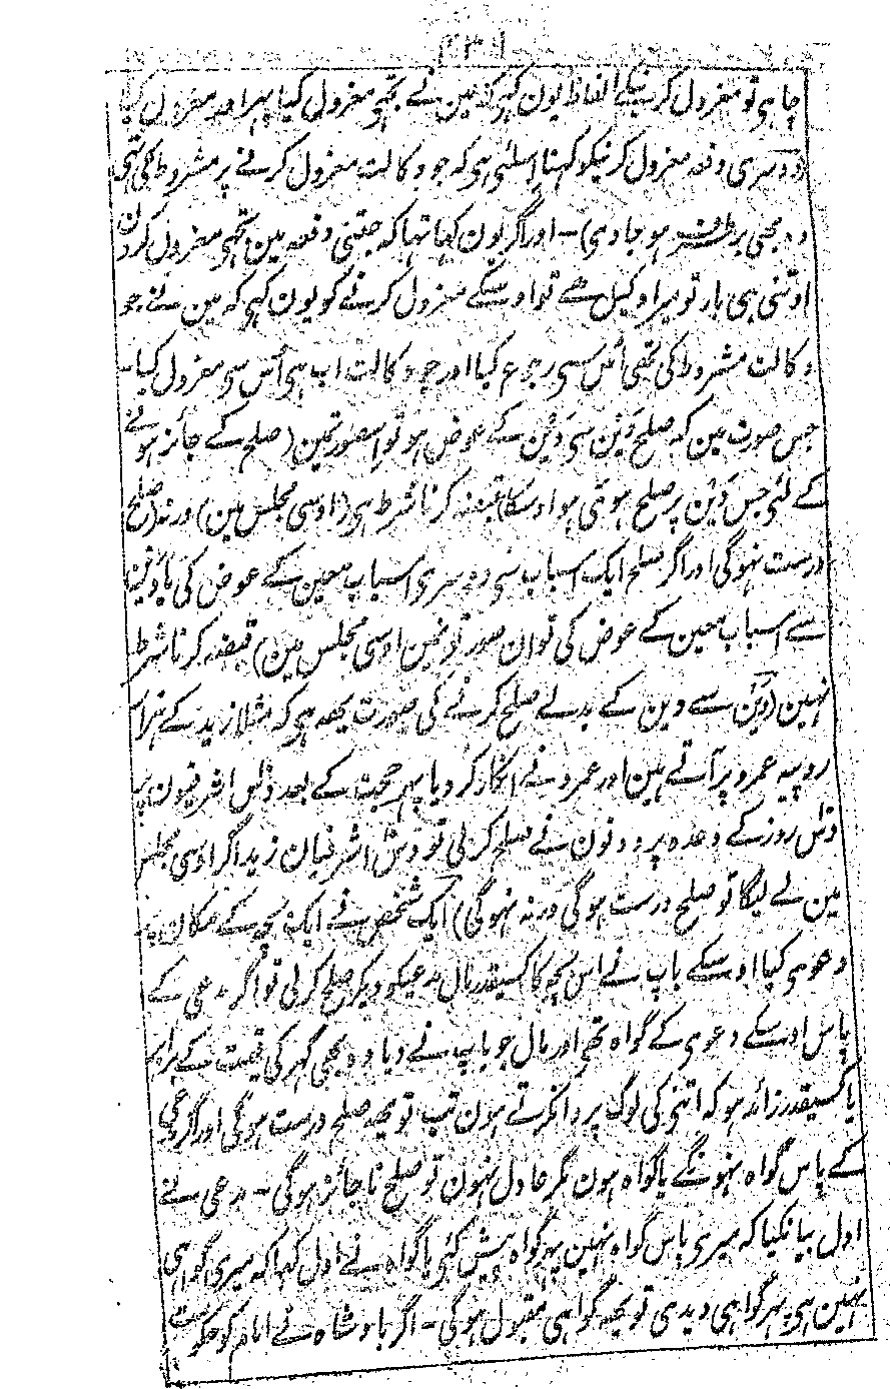 چاہی تو معزول کرنیکے الفاظ یون کہی کہ مین نے تجھی معزول کیا پہر اور معزول کیا
دوسری دفعہ معزول کرنیکو کہنا اسلئی ہی کہ جو وکالت معزول کرنے پر مشروط کی تہی
وہ بھی برطرف ہو جاوی) ۔ اور اگر یون کہا تہا کہ جتنی دفعہ مین تجھی معزول کرون
اوتنی ہی بار تو میرا وکیل ہے تو اوسکے معزول کرنے کو یون کہی کہ مین نے جو
وکالت مشروط کی تھی اُس سی رجوع کیا اور جو وکالت اب ہی اُس سی معزول کیا ۔
جس صورت مین کہ صلح دَین سی دَین کے عوض ہو تو اسصورتمین (صلح کے جائز ہونے
کے لئی جس دَین پر صلح ہوئی ہو اوسکا قبضہ کرنا شرط ہی (اوسی مجلس مین) ورنہ (صلح
درست نہوگی اور اگر صلح ایک اسباب سی دوسری اسباب معین کے عوض کی یا دَین
سے اسباب معین کے عوض کی تو ان صورتونمین اوسی مجلس مین) قبضہ کرنا شرط
نہین (دَین سے دین کے بدلے صلح کرنے کی صورت یہہ ہی کہ مثلا زید کے ہزار
روپیہ عمرو پر آتے ہین اور عمرو نے انکار کر دیا پہر حجت کے بعد دس اشرفیون پر
دس روز کے وعدہ پر دونون نے صلح کر لی تو دس اشرفیان زید اگر اوسی مجلس
مین لے لیگا تو صلح درست ہوگی ورنہ نہوگی) ایک شخص نے ایک بچہ کے مکان پر
دعوی کیا اوسکے باپ نے اس بچہ کا کسیقدر مال مدعیکو دیکر صلح کر لی تو اگر مدعی کے
پاس اوسکے دعوی کے گواہ تھی اور مال جو باپ نے دیا وہ بھی گہر کی قیمت کے برابر
یا کسیقدر زائد ہو کہ اتنی کی لوگ پروا نکرتے ہون تب تو یہہ صلح درست ہوگی اور اگر مدعی
کے پاس گواہ نہونگے یا گواہ ہون مگر عادل نہون تو صلح ناجائز ہوگی ۔ مدعی نے
اول بیانکیا کہ میری پاس گواہ نہین پہر گواہ پیش کئی یا گواہ نے اول کہا کہ میری گواہی
نہین ہی پہر گواہی دیدی تو یہہ گواہی مقبول ہوگی ۔ اگر بادشاہ نے امام کو حکومت